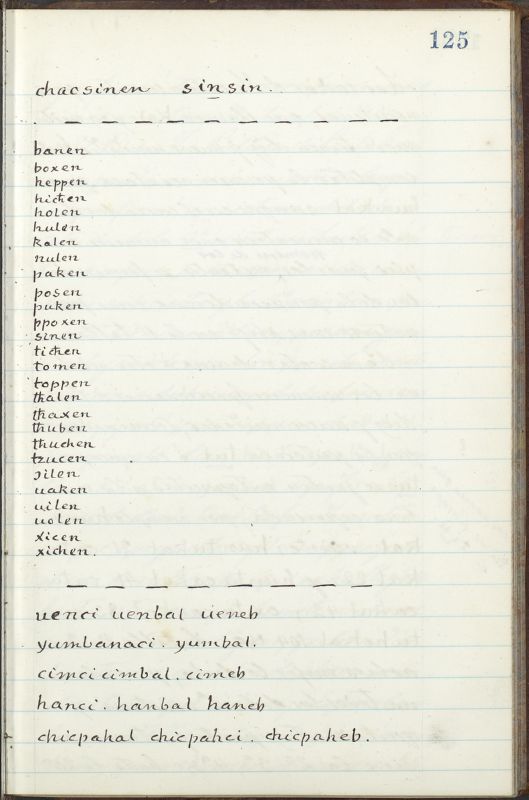 125
chacsinen sinsin.
banen
boxen
heppen
hichen
holen
hulen
kalen
nulen
paken
posen
puken
ppoxen
sinen
tichen
tomen
toppen
thalen
thaxen
thuben
thuchen
tzucen
silen
uaken
uilen
uolen
xicen
xichen.
uenci uenbal ueneb
yumbanaci. yumbal.
cimci cimbal. cimeb
hanci. hanbal haneb
chicpahal chicpahci. chicpaheb.